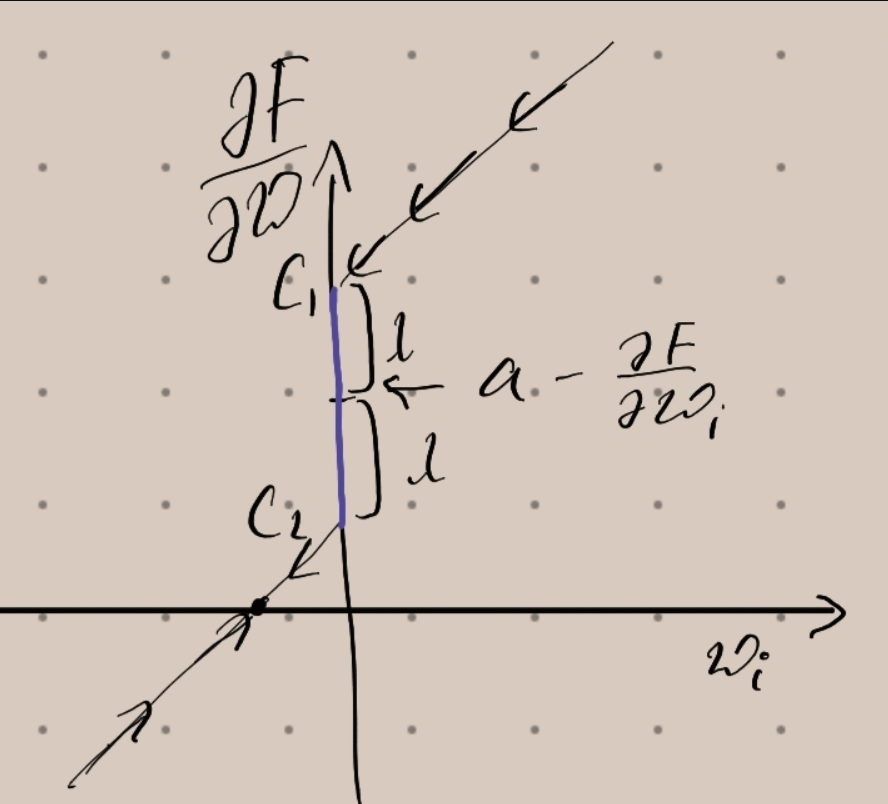 ∂F
∂w
C₁
l
a - ∂F/∂wᵢ
l
C₂
wᵢ